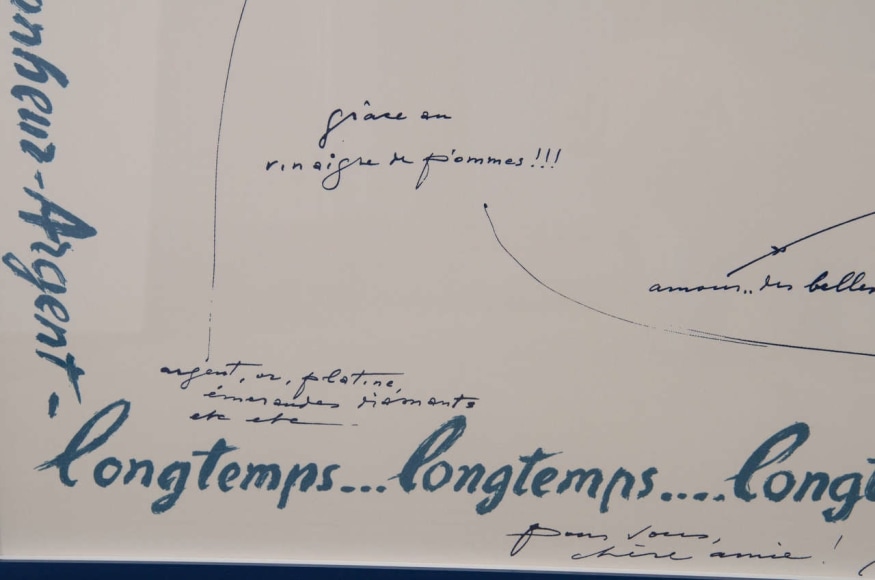 onheur-Argent-
grâce au
vinaigre de pommes!!!
amour.. des belles
argent, or, platine,
émeraudes diamants
etc etc
longtemps...longtemps....longt
pour vous,
chère amie!